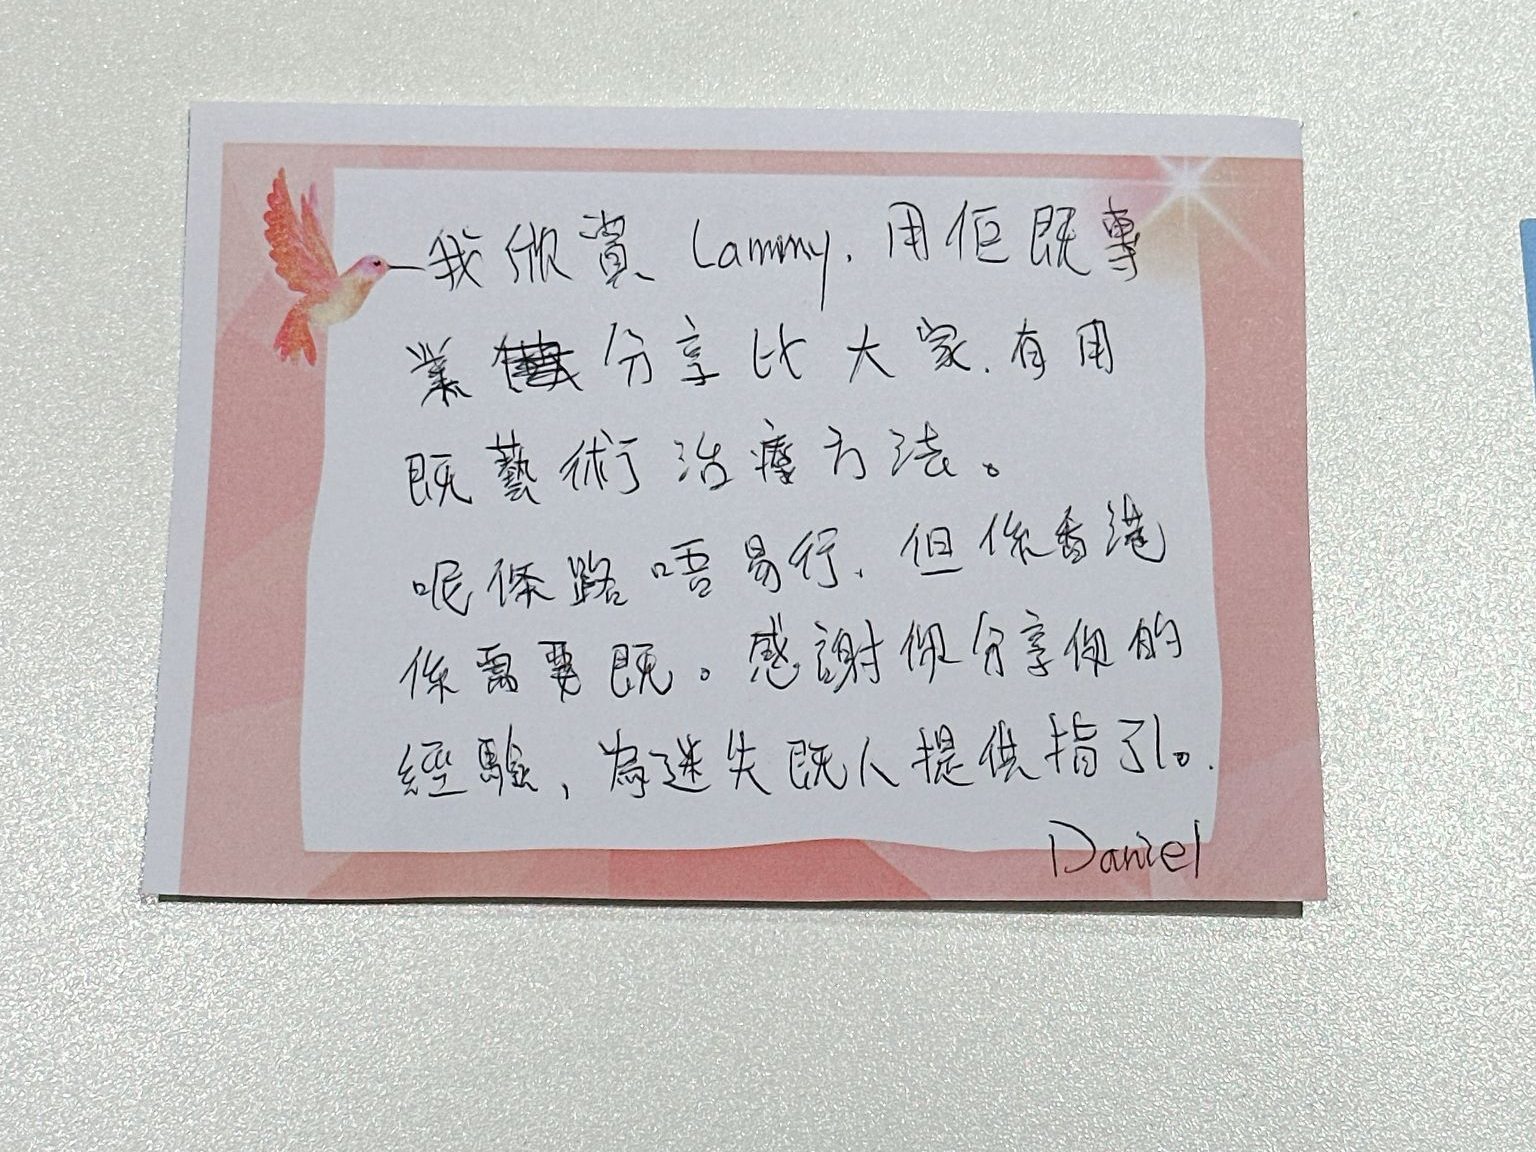 我欣賞 Lammy, 用佢既專
業 分享比大家, 有用
既藝術治療方法。
呢條路唔易行, 但係香港
係需要既。感謝你分享你的
經驗, 為迷失既人提供指引。
Daniel